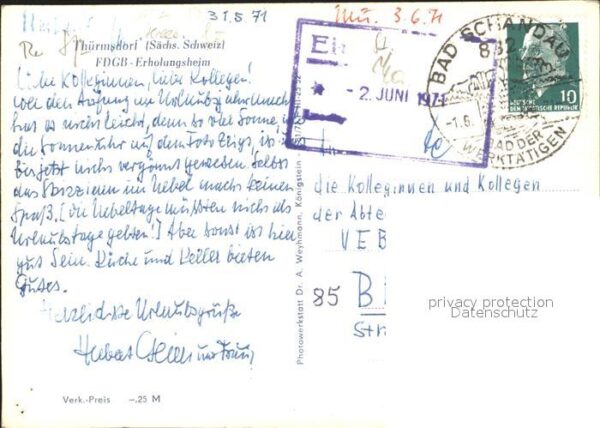 31.5.71
3.6.71
Thürmsdorf (Sächs. Schweiz)
FDGB-Erholungsheim
Liebe Kolleginnen, liebe Kollegen!
Wer den Anfang im Urlaub
hat es nicht leicht, denn so viel Sonne,
die Sonnenuhr auf dem Foto zeigt, ist
bis jetzt nicht vergönnt gewesen. Selbst
das Spazieren im Nebel macht keinen
Spaß. (Die Nebeltage müßten nicht als
Urlaubstage gelten!) Aber sonst ist hier
gut sein. Küche und Keller bieten
Gutes.
Herzlichste Urlaubsgrüße
Hubert und Frau
Verk.-Preis –.25 M
Photowerkstatt Dr. A. Weyhmann, Königstein
Ein
- 2. JUNI 1971
BAD SCHANDAU
832
-1.6.
BAD DER
WERKTÄTIGEN
DEUTSCHE
DEMOKRATISCHE REPUBLIK
10
die Kolleginnen und Kollegen
der Abte
VEB
85 B
Str
privacy protection
Datenschutz